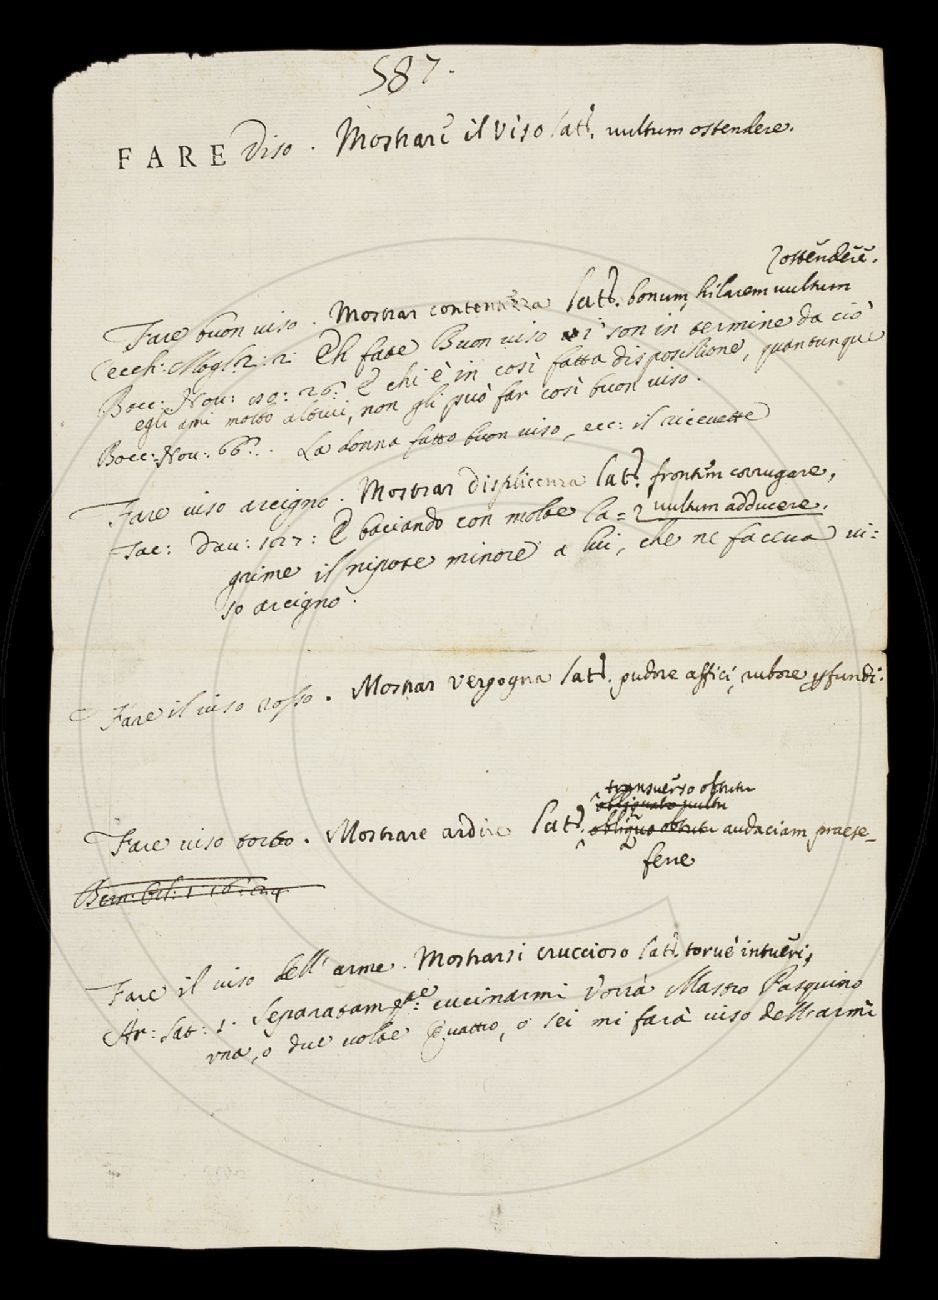 587.
FARE Viso. Mostrare il viso lat. vultum ostendere.
ostendere.
Fare buon viso. Mostrar contentezza lat. bonum, hilarem vultum
Cecch: Mogl: 2: 2: Eh fate Buon viso i' son in termine da ciò
Bocc: Nov: 26: E chi è in così fatta disposizione, quantunque
egli ami molto altrui, non gli può far così buon viso.
Bocc: Nov: 66: La donna fatto buon viso, ecc: il ricevette
Fare viso arcigno. Mostrar displicenza lat. frontem corrugare,
vultum adducere.
Tac: Dav: E baciando con molte la=
grime il nipote minore a lui, che ne faceva vi=
so arcigno.
Fare il viso rosso. Mostrar vergogna lat. pudore affici, rubore perfundi.
transverso obtutu
obliquato vultu
Fare viso torto. Mostrare ardire lat. obliquo obtutu audaciam praese_
ferre
Fare il viso dell'arme. Mostrarsi cruccioso lat. torvè intueri,
Ar: Sat: 1. Separatam.te cucinarmi Vorrà Mastro Pasquino
Una, o due volte Quattro, o sei mi farà viso dell'armi